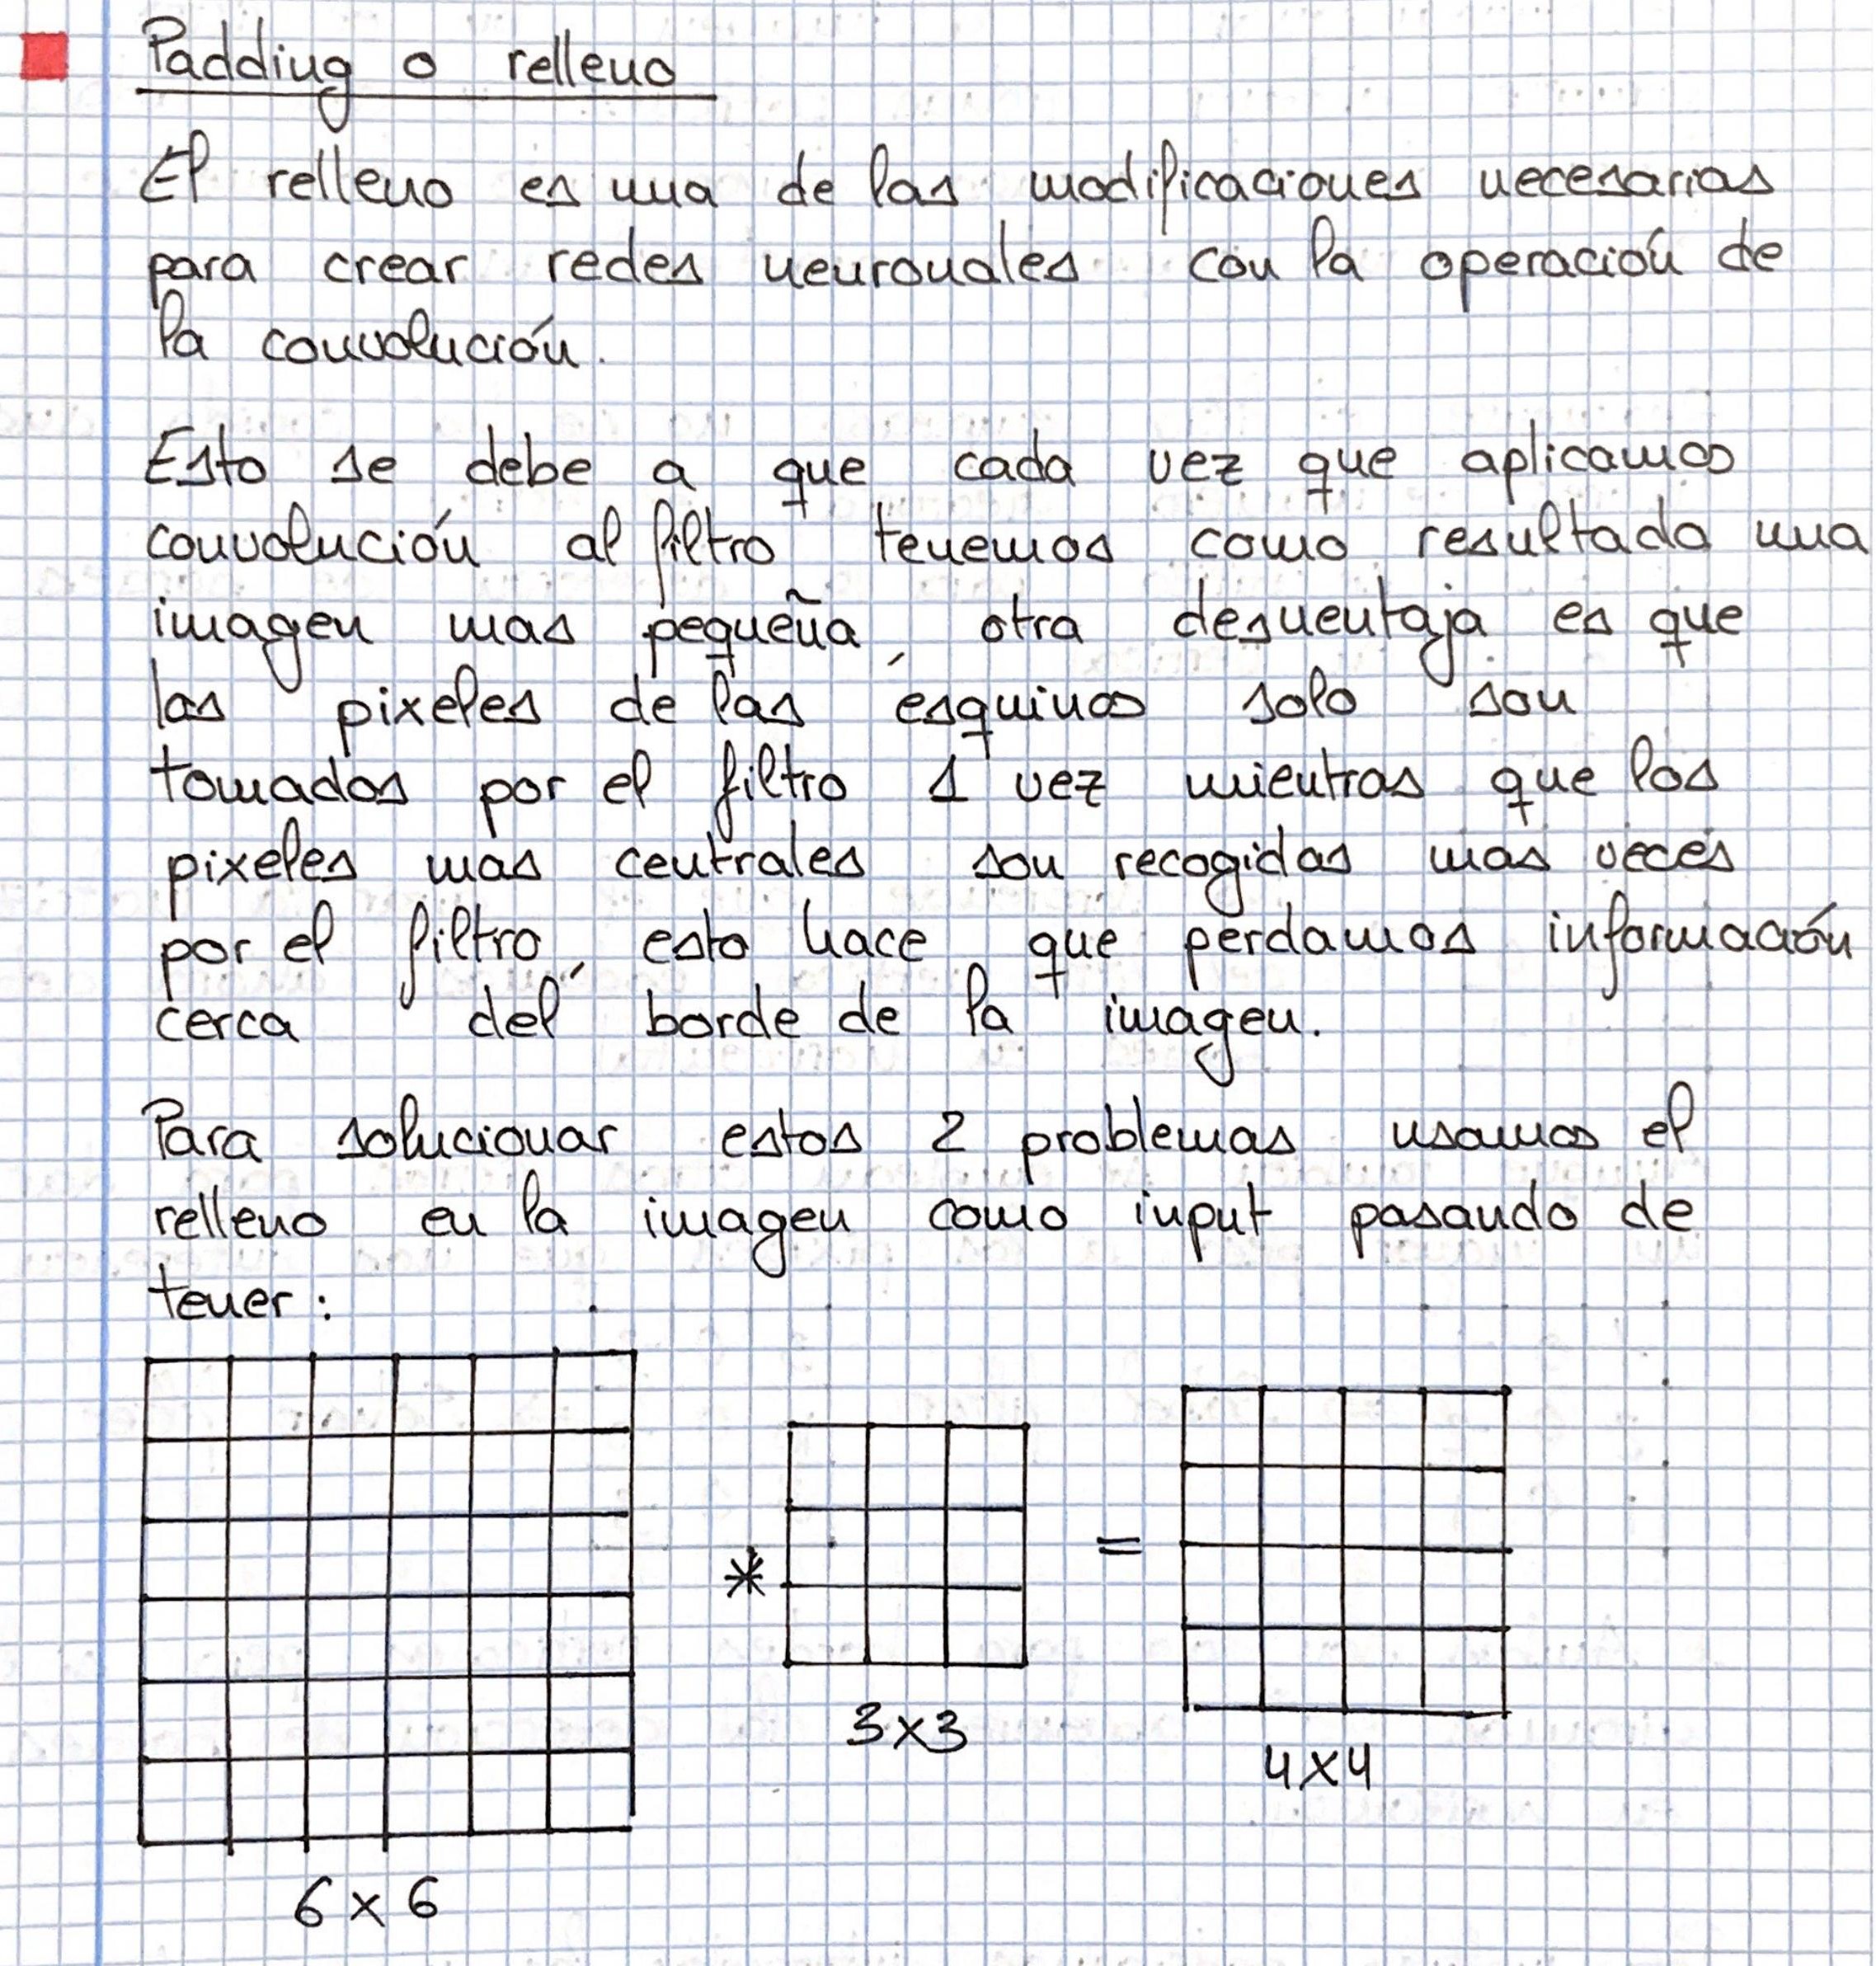 Padding o relleno
El relleno es una de las modificaciones necesarias
para crear redes neuronales con la operación de
la convolución.
Esto se debe a que cada vez que aplicamos
convolución al filtro tenemos como resultado una
imagen mas pequeña, otra desventaja es que
los pixeles de las esquinas solo son
tomados por el filtro 1 vez mientras que los
pixeles mas centrales son recogidos mas veces
por el filtro, esto hace que perdamos información
cerca del borde de la imagen.
Para solucionar estos 2 problemas usamos el
relleno en la imagen como input pasando de
tener:
* =
3x3
4x4
6x6